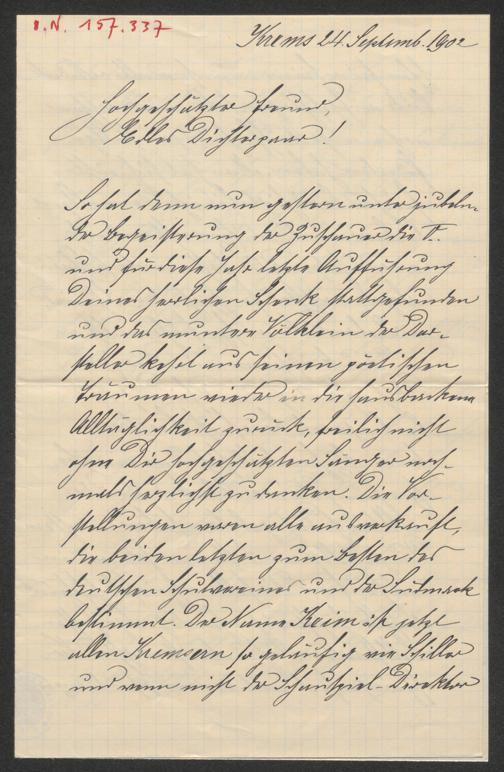 I.N. 157.337
Krems 24. Septemb. 1902
Hochgeschätzter Freund,
Edles Dichterpaar!
So hat denn nun gestern unter jubeln-
der Begeisterung der Zuschauer die V.
und für dieses Jahr letzte Aufführung
Deines herrlichen Schenk stattgefunden
und das muntere Völklein der Dar-
steller kehrt aus seinen poetischen
Träumen wieder in die hausbackene
Alltäglichkeit zurück, freilich nicht
ohne Dir hochgeschätzten Sänger noch-
mals herzlichst zu danken. Die Vor-
stellungen waren alle ausverkauft,
die beiden letzten zum Besten des
deutschen Schulvereines und der Südmark
bestimmt. Der Name Keim ist jetzt
allen Kremsern so geläufig wie Schiller
und wenn nicht der Schauspiel-Direktor